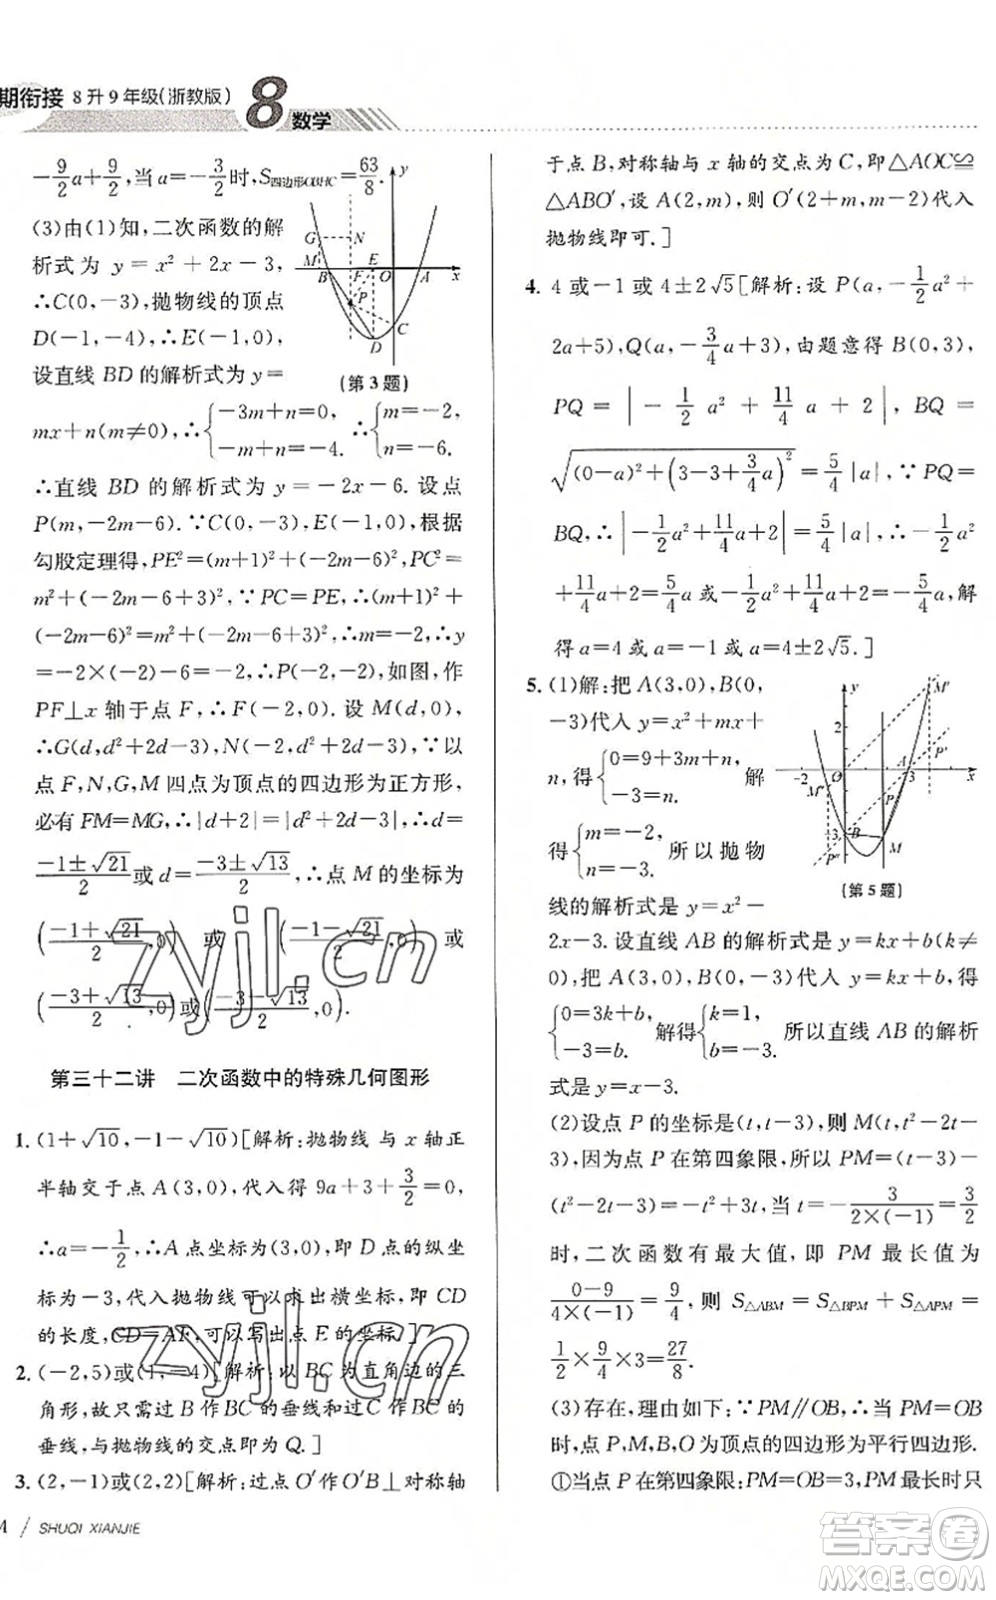 期衔接 8升9年级(浙教版) 8 数学
-9/2a+9/2,当a=-3/2时,S四边形OBHC=63/8.
(3)由(1)知,二次函数的解
析式为 y=x²+2x-3,
∴C(0,-3),抛物线的顶点
D(-1,-4),∴E(-1,0),
设直线BD的解析式为y=
mx+n(m≠0),∴{-3m+n=0, -m+n=-4. ∴{m=-2, n=-6.
(第3题)
G N M B F E O A x y P C D
∴直线BD的解析式为y=-2x-6. 设点
P(m,-2m-6).∵C(0,-3),E(-1,0),根据
勾股定理得,PE²=(m+1)²+(-2m-6)²,PC²=
m²+(-2m-6+3)²,∵PC=PE,∴(m+1)²+
(-2m-6)²=m²+(-2m-6+3)²,∴m=-2,∴y
=-2×(-2)-6=-2,∴P(-2,-2),如图,作
PF⊥x轴于点F,∴F(-2,0). 设M(d,0),
∴G(d,d²+2d-3),N(-2,d²+2d-3),∵以
点F,N,G,M四点为顶点的四边形为正方形,
必有FM=MG,∴|d+2|=|d²+2d-3|,∴d=
(-1±√21)/2或d=(-3±√13)/2,∴点M的坐标为
((-1+√21)/2,0)或((-1-√21)/2,0)或
((-3+√13)/2,0)或((-3-√13)/2,0).
第三十二讲 二次函数中的特殊几何图形
1. (1+√10,-1-√10)[解析:抛物线与x轴正
半轴交于点A(3,0),代入得 9a+3+3/2=0,
∴a=-1/2,∴A点坐标为(3,0),即D点的纵坐
标为-3,代入抛物线可以求出横坐标,即CD
的长度,CD=AF,可以写出点E的坐标.]
2. (-2,5)或(1,-4)[解析:以BC为直角边的三
角形,故只需过B作BC的垂线和过C作BC的
垂线,与抛物线的交点即为Q.]
3. (2,-1)或(2,2)[解析:过点O′作O′B⊥对称轴
4 / SHUQI XIANJIE
于点B,对称轴与x轴的交点为C,即△AOC≌
△ABO′,设A(2,m),则O′(2+m,m-2)代入
抛物线即可.]
4. 4或-1或4±2√5[解析:设P(a,-1/2a²+
2a+5),Q(a,-3/4a+3),由题意得B(0,3),
PQ=|-1/2a²+11/4a+2|,BQ=
√((0-a)²+(3-3+3/4a)²)=5/4|a|,∵PQ=
BQ,∴|-1/2a²+11/4a+2|=5/4|a|,∴-1/2a²
+11/4a+2=5/4a或-1/2a²+11/4a+2=-5/4a,解
得a=4或a=-1或a=4±2√5.]
5. (1)解:把A(3,0),B(0,
-3)代入y=x²+mx+
n,得{0=9+3m+n, -3=n. 解
得{m=-2, n=-3. 所以抛物
线的解析式是y=x²-
y M′ 2 P′ -2 O A 3 x M″ -3 B M P″ P
(第5题)
2x-3.设直线AB的解析式是y=kx+b(k≠
0),把A(3,0),B(0,-3)代入y=kx+b,得
{0=3k+b, -3=b. 解得{k=1, b=-3. 所以直线AB的解析
式是y=x-3.
(2)设点P的坐标是(t,t-3),则M(t,t²-2t-
3),因为点P在第四象限,所以PM=(t-3)-
(t²-2t-3)=-t²+3t,当t=-3/(2×(-1))=3/2
时,二次函数有最大值,即PM最长值为
(0-9)/(4×(-1))=9/4,则S△ABM=S△BPM+S△APM=
1/2×9/4×3=27/8.
(3)存在,理由如下:∵PM∥OB,∴当PM=OB
时,点P,M,B,O为顶点的四边形为平行四边形.
①当点P在第四象限:PM=OB=3,PM最长时只
zyjl.cn
zyjl.cn
答案圈
MXQE.COM